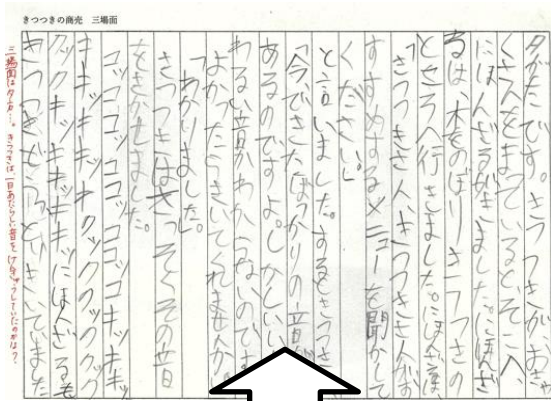 きつつきの商売　三場面
夕がたです。きつつきがおきゃ
くさんをまっているとそこへ、
にほんざるがきました。にほんざ
るは、木をのぼりきつつきの
ところへ行きました。にほんざるは、
「きつつきさん、きつつきさんがお
すすめするメニューを聞かして
ください。」
と言いました。するときつつき
「今できたばっかりの音が
あるのですよ。しかしいい
わるい音かわからないのです
よかったらきいてくれませんか。
「わかりました。」
きつつきはさっそくその音
をきかせました。
コッツコココッツコココッコキッツキキッ
キキッキッキックックックックック
クックキッツキッキキッにほんざるも
きつつきどうっとりきいてました
三場面は夕方…。きつつきは、一日あたらしい音を